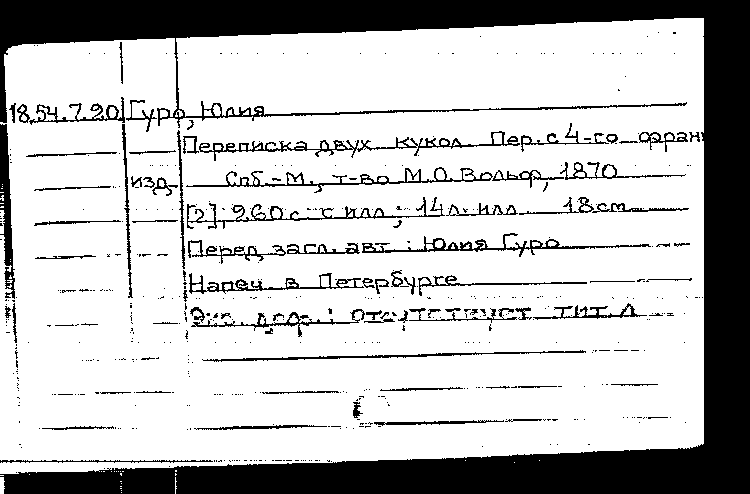 18.54.7.20 Гуро, Юлия
Переписка двух кукол. Пер. с 4-го франц
изд. Спб.-М., т-во М.О. Вольф, 1870
[2], 260 с. с илл.; 14 л. илл. 18 см.
Перед загл. авт.: Юлия Гуро
Напеч. в Петербурге
Экз. деф.: отсутствует тит. л